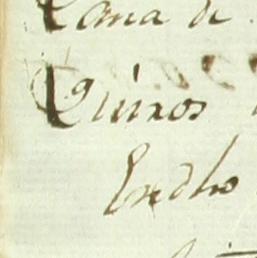 Cama de
Quiros
En dho